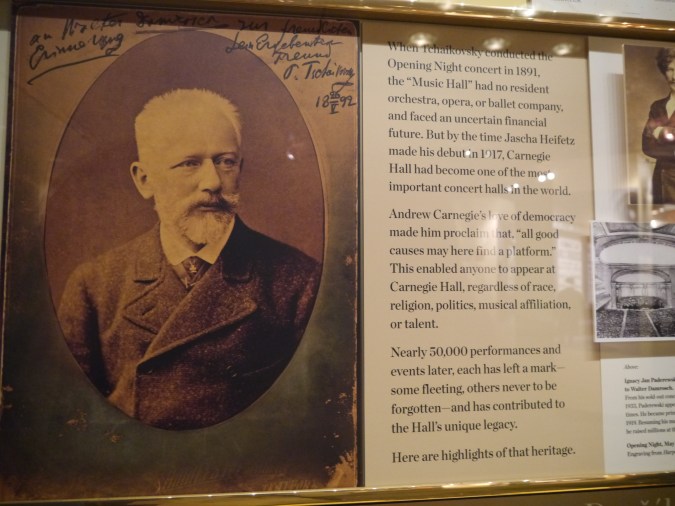 an Walter Damrosch zur freundlichen
Erinnerung
dem Ergebenen
Freund
P. Tschaikovsky
1892
When Tchaikovsky conducted the
Opening Night concert in 1891,
the “Music Hall” had no resident
orchestra, opera, or ballet company,
and faced an uncertain financial
future. But by the time Jascha Heifetz
made his debut in 1917, Carnegie
Hall had become one of the most
important concert halls in the world.
Andrew Carnegie’s love of democracy
made him proclaim that, “all good
causes may here find a platform.”
This enabled anyone to appear at
Carnegie Hall, regardless of race,
religion, politics, musical affiliation,
or talent.
Nearly 50,000 performances and
events later, each has left a mark—
some fleeting, others never to be
forgotten—and has contributed to
the Hall’s unique legacy.
Here are highlights of that heritage.
Above:
Ignacy Jan Paderewski
to Walter Damrosch,
From his sold-out
times. He became
he raised millions at
Opening Night, May
Engraving from